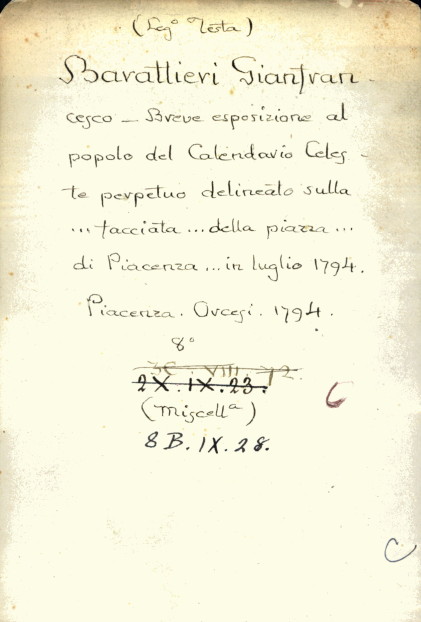 (Leg° Testa)
Barattieri Gianfran-
cesco — Breve esposizione al
popolo del Calendario Celes-
te perpetuo delineato sulla
... facciata ... della piazza ...
di Piacenza ... in luglio 1794.
Piacenza. Orcesi. 1794.
8°
VIII. 12.
2X.IX.23.
(Miscellª)
8B.IX.28.
C
C